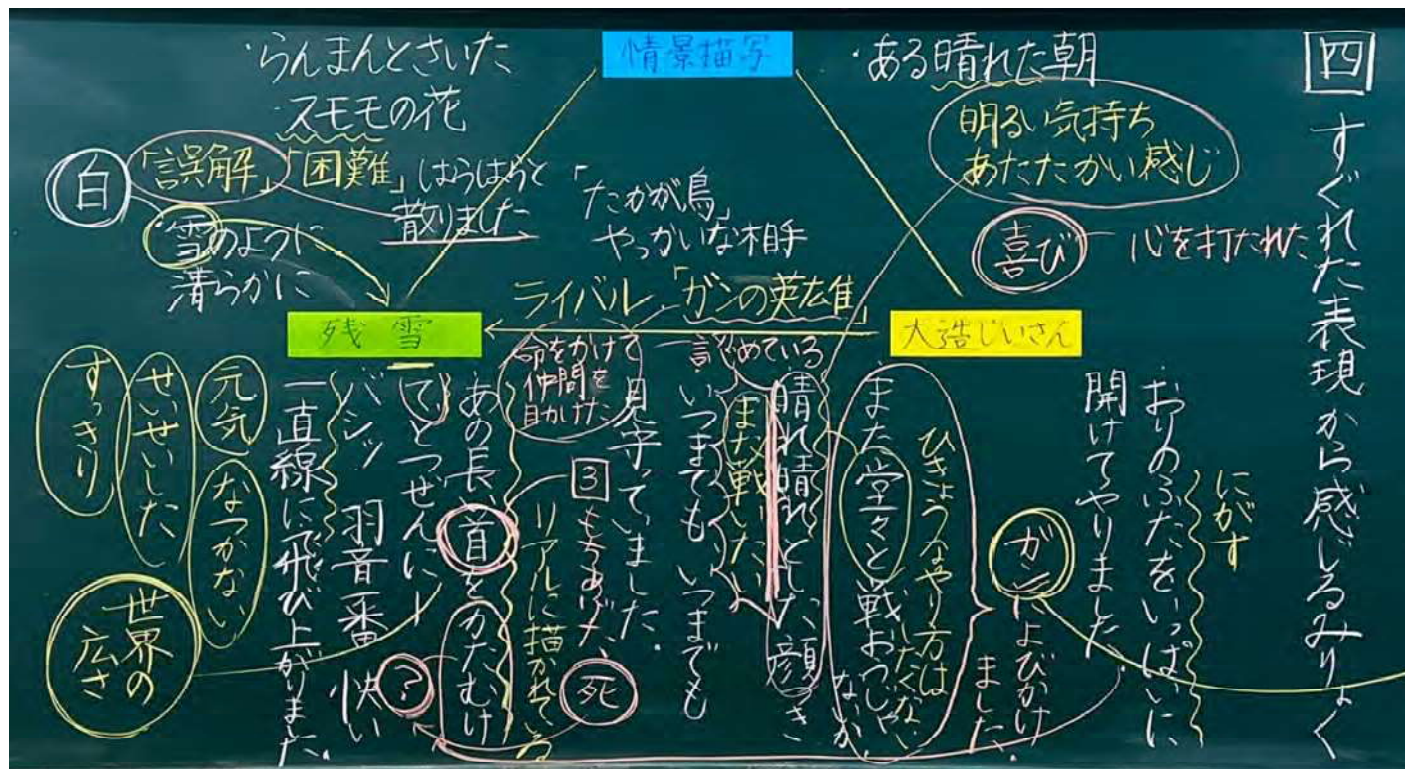 四 すぐれた表現から感じるみりょく
・ある晴れた朝
明るい気持ち
あたたかい感じ
喜び
心を打たれた
情景描写
・らんまんとさいた
・スモモの花
「誤解」「困難」
はらはらと
散りました
白
・雪のように
清らかに
「たかが鳥」
やっかいな相手
ライバル
「ガンの英雄」
大造じいさん
残雪
にがす
おりのふたをいっぱいに
開けてやりました。
ガン
よびかけ
ました。
ひきょうなやり方は
したくない
また堂々と戦おうじゃ
ないか。
晴れ晴れとした顔つき
また戦いたい
認めている
いつまでも いつまでも
見守っていました。
命をかけて
仲間を
助けた
3 もちあげた
リアルに描かれている
死
あの長い首をかたむけ
て、とつぜんに
?
バシッ 羽音一番
快い
一直線に飛び上がりました。
元気
なつかない
せいせいした
すっきり
世界の
広さ